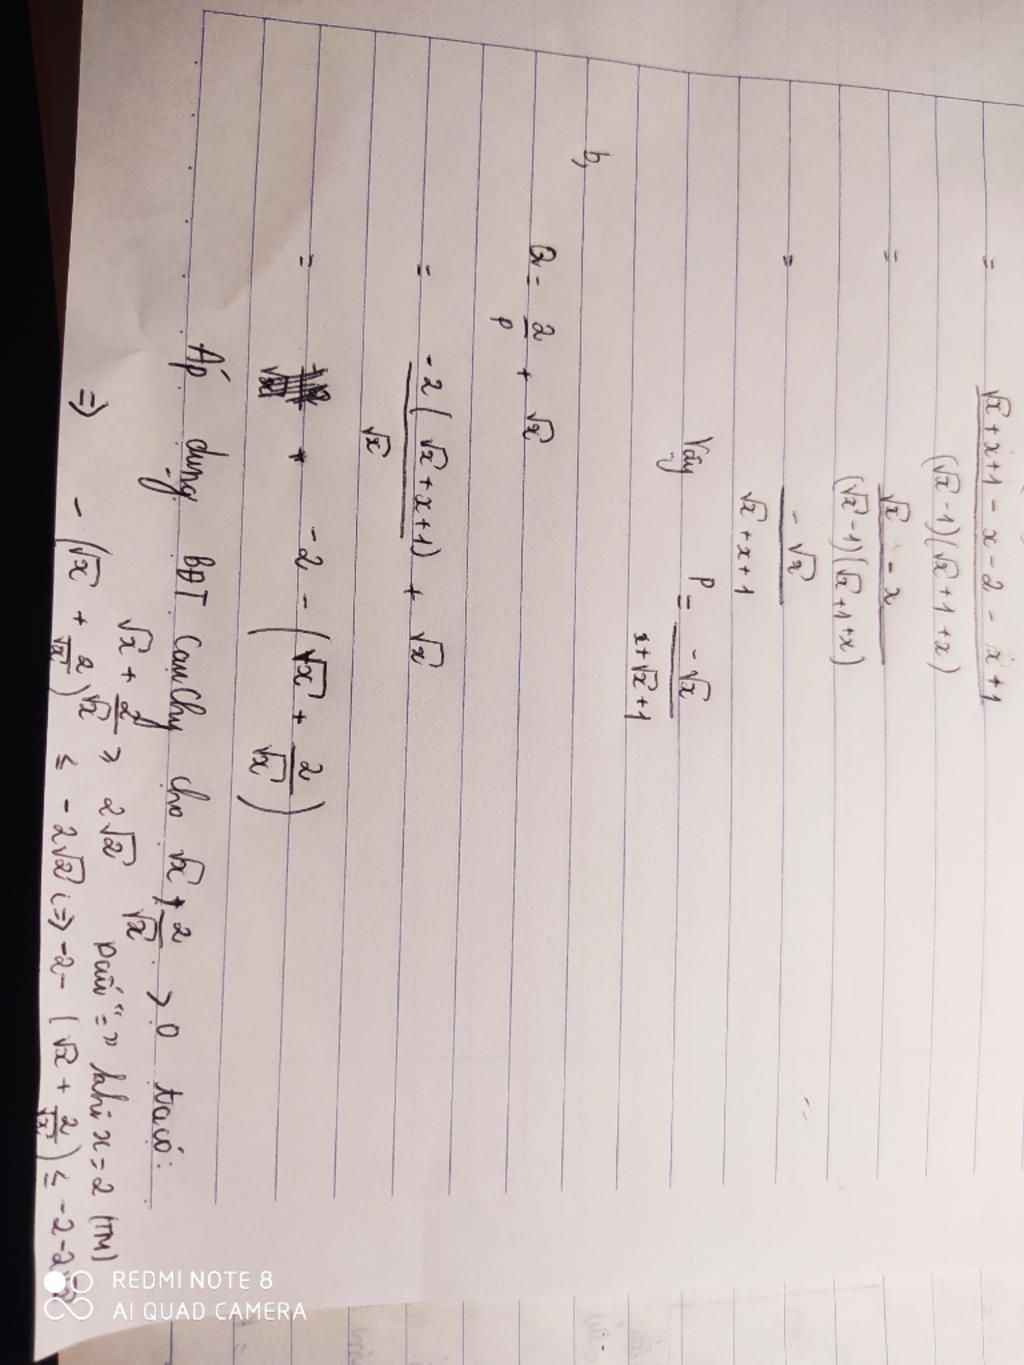 = (√x + x + 1 - x - 2 - x + 1) / ((√x - 1)(√x + 1 + x))
= (√x - x) / ((√x - 1)(√x + 1 + x))
= -√x / (√x + x + 1)
Vậy P = -√x / (x + √x + 1)
b,
Q = 2/P + √x
= -2(√x + x + 1) / √x + √x
= -2 - (√x + 2/√x)
Áp dụng BĐT Cauchy cho √x, 2/√x > 0 ta có:
√x + 2/√x ≥ 2√2 Dấu "=" khi x = 2 (TM)
=> -(√x + 2/√x) ≤ -2√2 <=> -2 - (√x + 2/√x) ≤ -2 - 2√2
REDMI NOTE 8
AI QUAD CAMERA